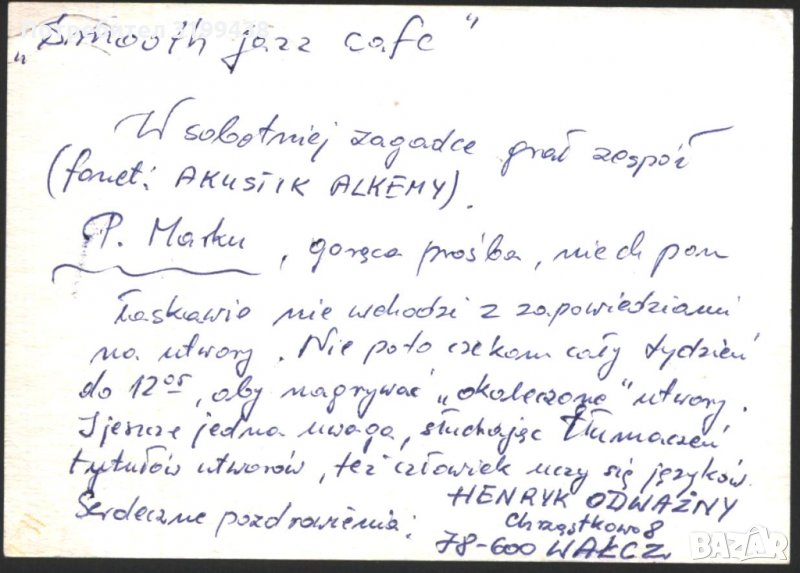 Потребител 7199438
„Smooth jazz cafe"
W sobotniej zagadce grał zespół
(fonet: AKUSTIK ALKEMY).
P. Marku, gorąca prośba, niech pan
łaskawie nie wchodzi z zapowiedziami
na utwory. Nie poto czekam cały tydzień
do 12⁰⁵, aby nagrywać „okaleczone" utwory.
I jeszcze jedna uwaga, słuchając tłumaczeń
tytułów utworów, też człowiek uczy się języków.
Serdeczne pozdrowienia:
HENRYK ODWAŻNY
Chrząstkowo 8
78-600 WAŁCZ
BAZAR